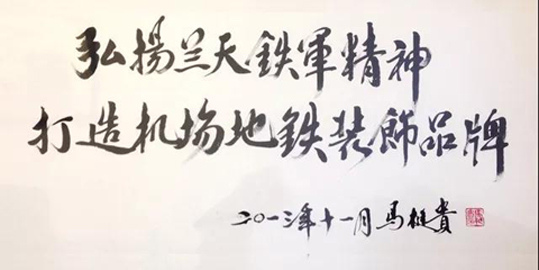 弘揚兰天鉄軍精神
打造机场地鉄装飾品牌
二〇一三年十一月 馬挺貴